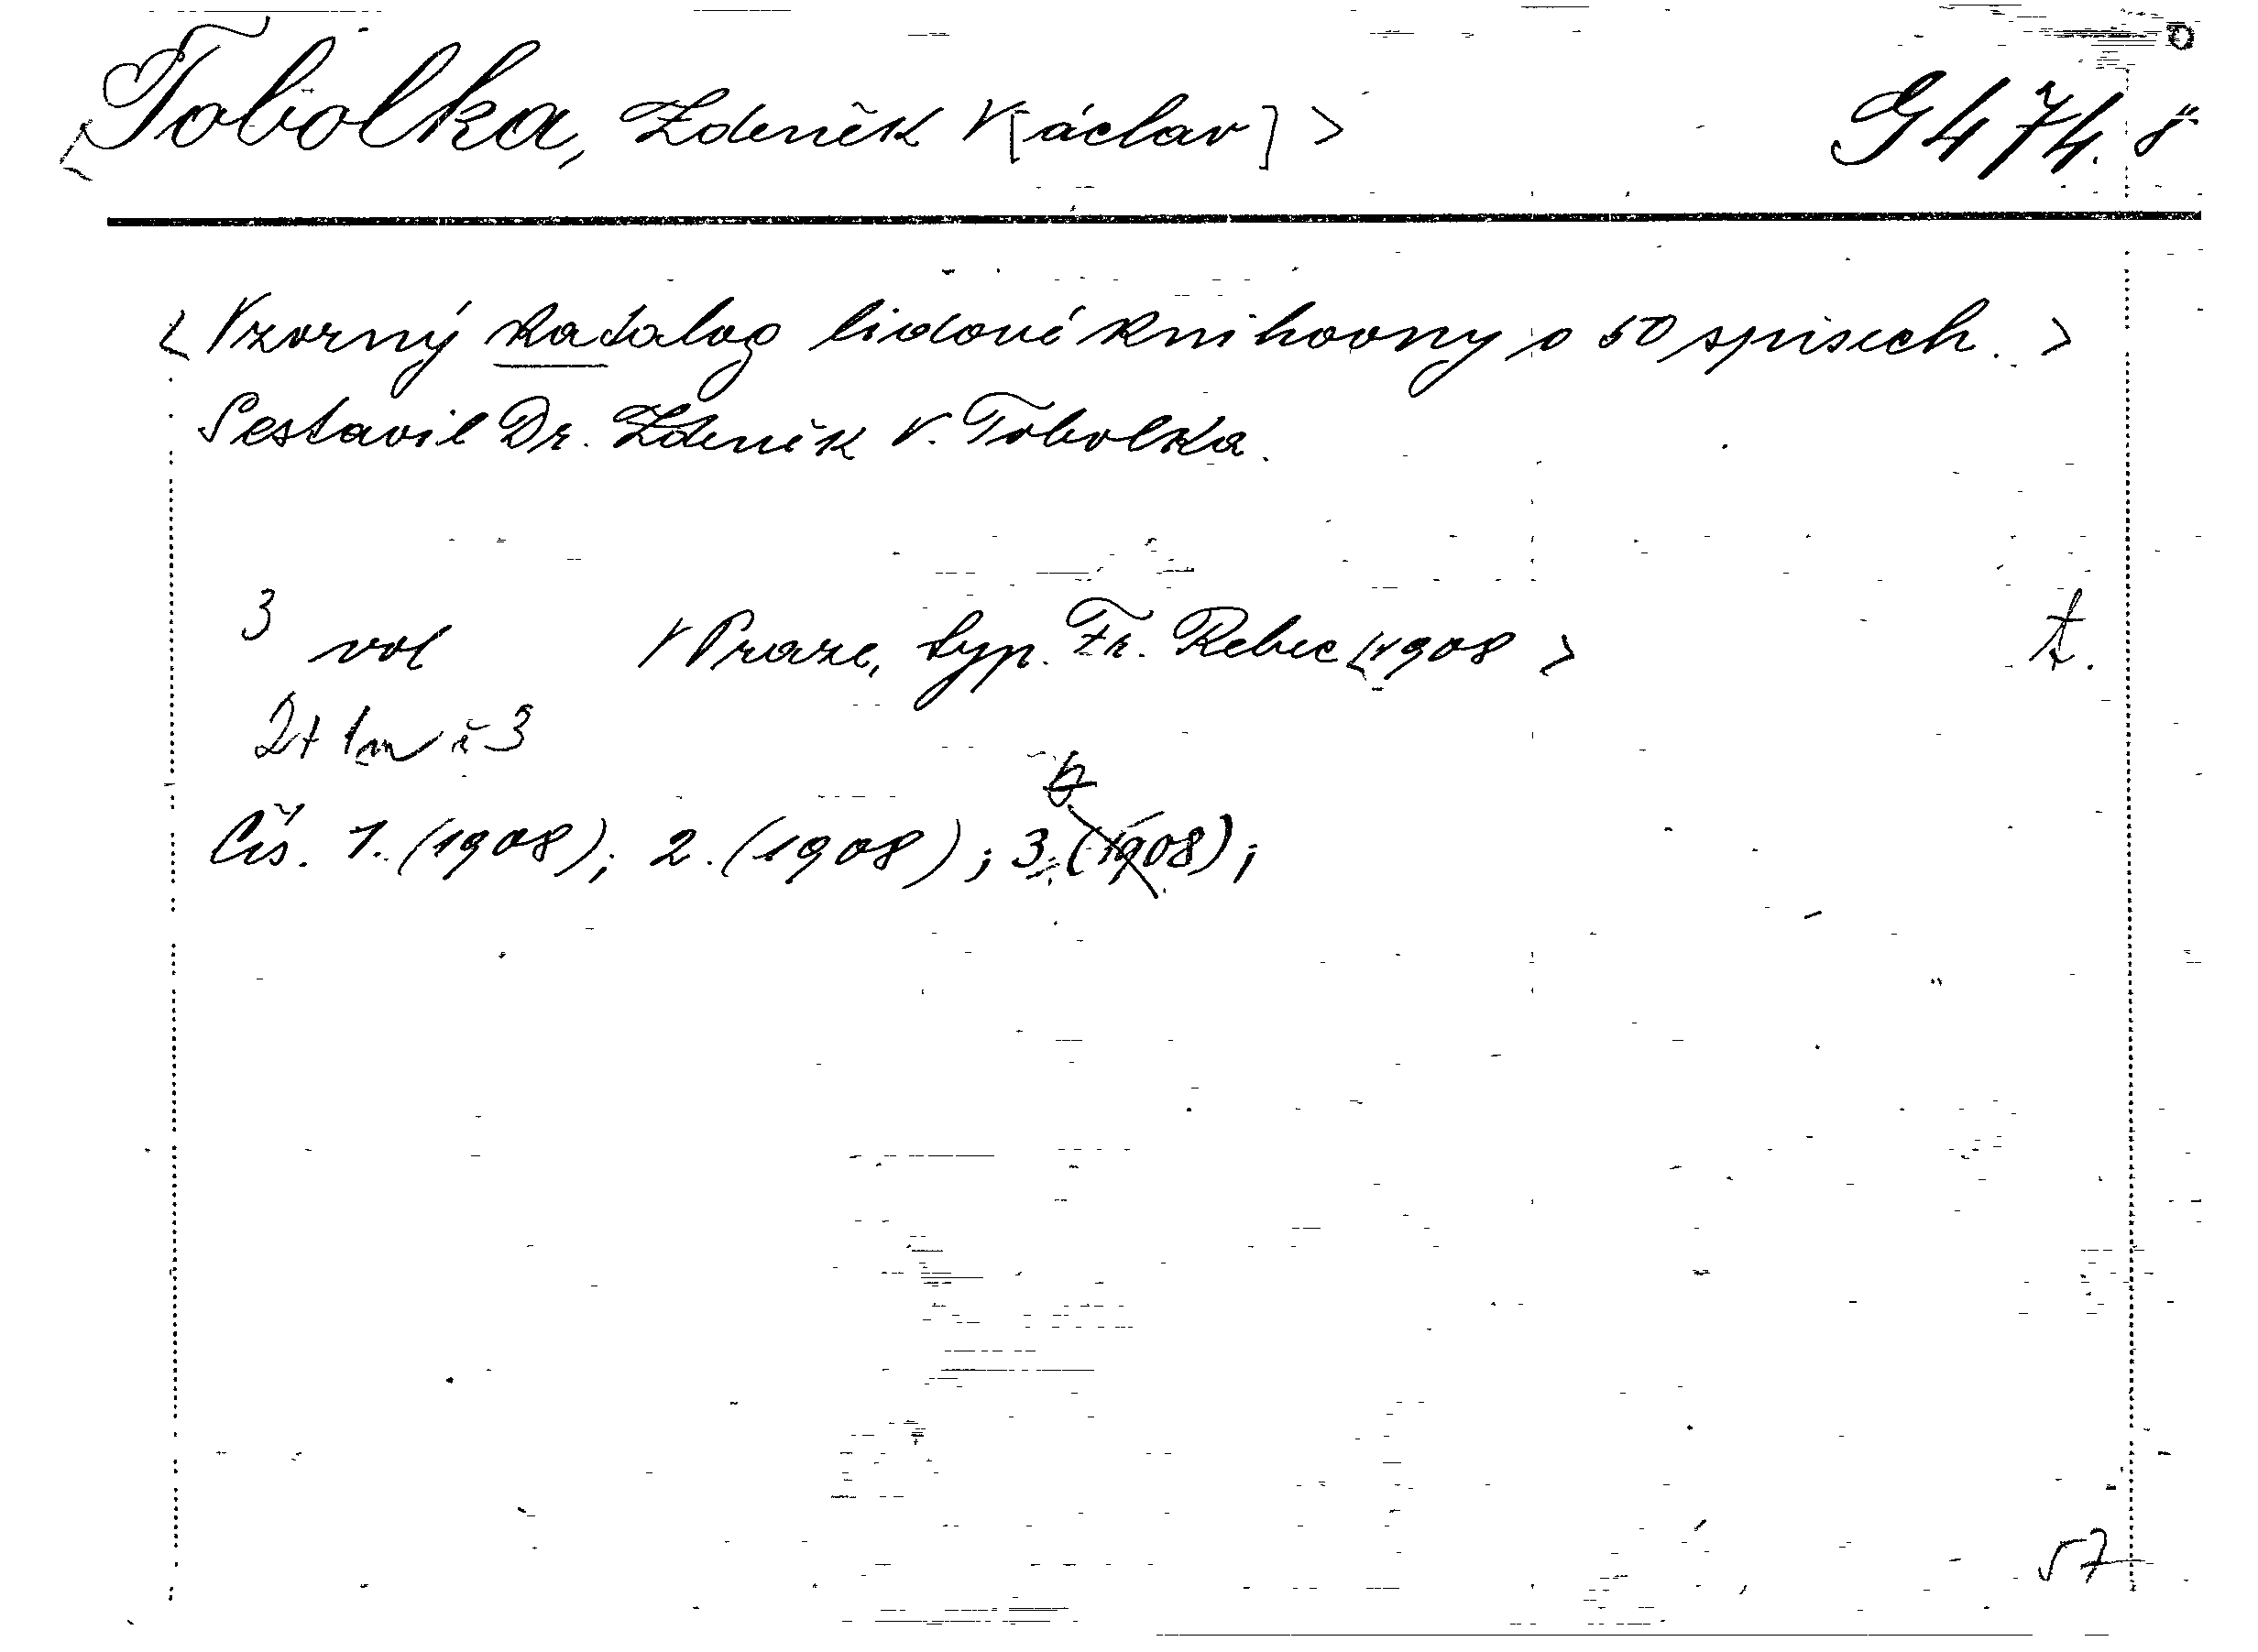 <Tobolka, Zdeněk V[áclav]> G 474. 8°
<Vzorný katalog lidové knihovny o 50 spisech.>
Sestavil Dr. Zdeněk V. Tobolka.
3 vol V Praze, typ. Fr. Rebec <1908> t.
2+1 č 3
Čís. 1. (1908); 2. (1908); 3. (1908);
57